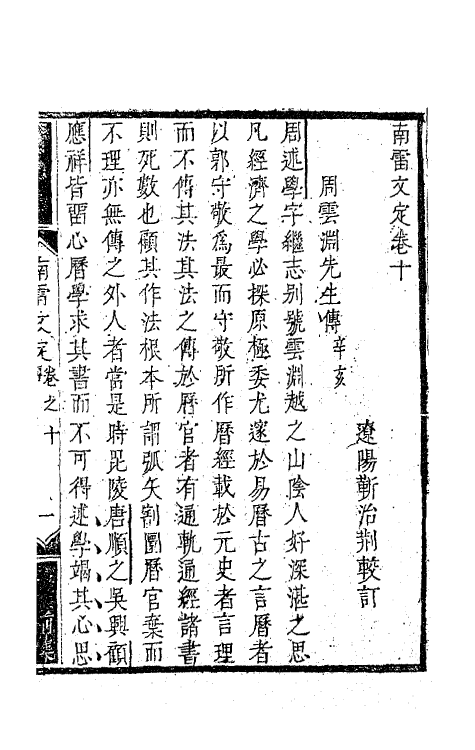 南雷文定卷十
遼陽靳治荆較訂
周雲淵先生傳辛亥
周述學字繼志别號雲淵越之山陰人好深湛之思
凡經濟之學必探原極委尤邃於易曆古之言曆者
以郭守敬爲最而守敬所作曆經載於元史者言理
而不傳其法其法之傳於曆官者有通軌通經諸書
則死數也顧其作法根本所謂弧矢割圓曆官棄而
不理亦無傳之外人者當是時毘陵唐順之吳興顧
應祥皆留心曆學求其書而不可得述學竭其心思
南雷文定
卷之十
一
前集